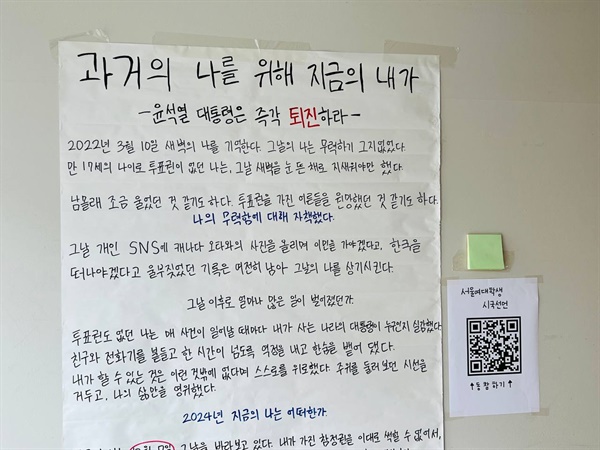 과거의 나를 위해 지금의 내가
-윤석열 대통령은 즉각 퇴진하라-
2022년 3월 10일 새벽의 나를 기억한다. 그날의 나는 무력하기 그지없었다.
만 17세의 나이로 투표권이 없던 나는, 그날 새벽을 눈 뜬 채로 지새워야만 했다.
남몰래 조금 울었던 것 같기도 하다. 투표권을 가진 어른들을 원망했던 것 같기도 하다.
나의 무력함에 대해 자책했다.
그날 개인 SNS에 캐나다 오타와의 사진을 올리며 이민을 가야겠다고, 한국을
떠나야겠다고 울부짖었던 기록은 여전히 남아 그날의 나를 상기시킨다.
그날 이후로 얼마나 많은 일이 벌어졌던가.
투표권도 없던 나는 매 사건이 일어날 때마다 내가 사는 나라의 대통령이 누군지 실감했다.
친구와 전화기를 붙들고 한 시간이 넘도록 역정을 내고 한숨을 뱉어 댔다.
내가 할 수 있는 것은 이런 것밖에 없다며 스스로를 위로했다. 주위를 둘러보던 시선을
거두고, 나의 삶만을 영위했다.
2024년 지금의 나는 어떠한가.
그날을 바라보고 있다. 내가 가진 참정권을 이대로 썩힐 수 없어서,
서울여대학생
시국선언
↑동참하기↑